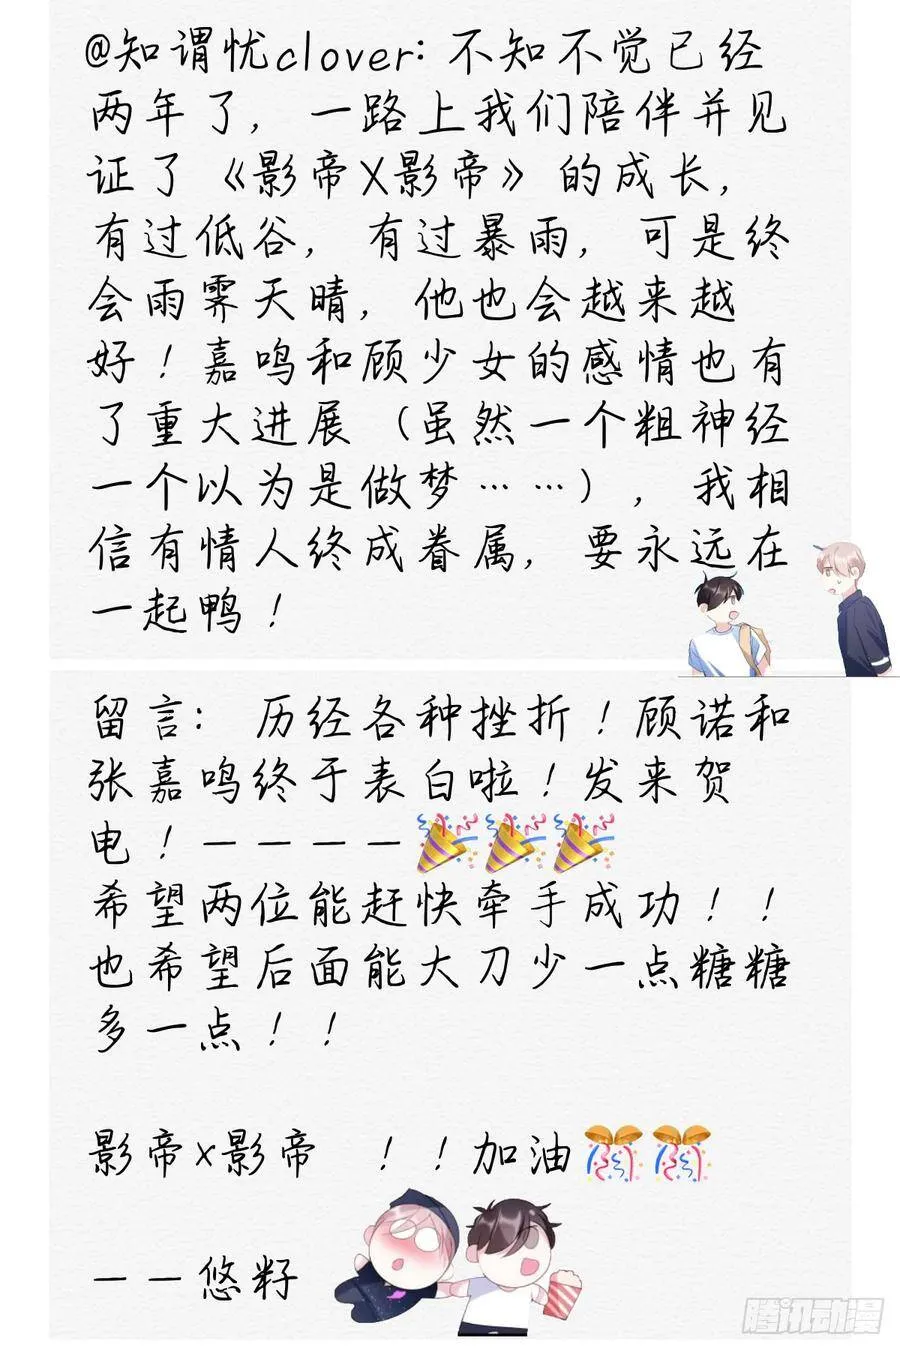 @知谓忧clover: 不知不觉已经
两年了, 一路上我们陪伴并见
证了《影帝X影帝》的成长,
有过低谷, 有过暴雨, 可是终
会雨霁天晴, 他也会越来越
好!嘉鸣和顾少女的感情也有
了重大进展(虽然一个粗神经
一个以为是做梦……), 我相
信有情人终成眷属, 要永远在
一起鸭!
留言: 历经各种挫折!顾诺和
张嘉鸣终于表白啦!发来贺
电!————🎉🎉🎉
希望两位能赶快牵手成功!!
也希望后面能大刀少一点糖糖
多一点!!
影帝x影帝 !!加油🎊🎊
——悠籽
腾讯动漫